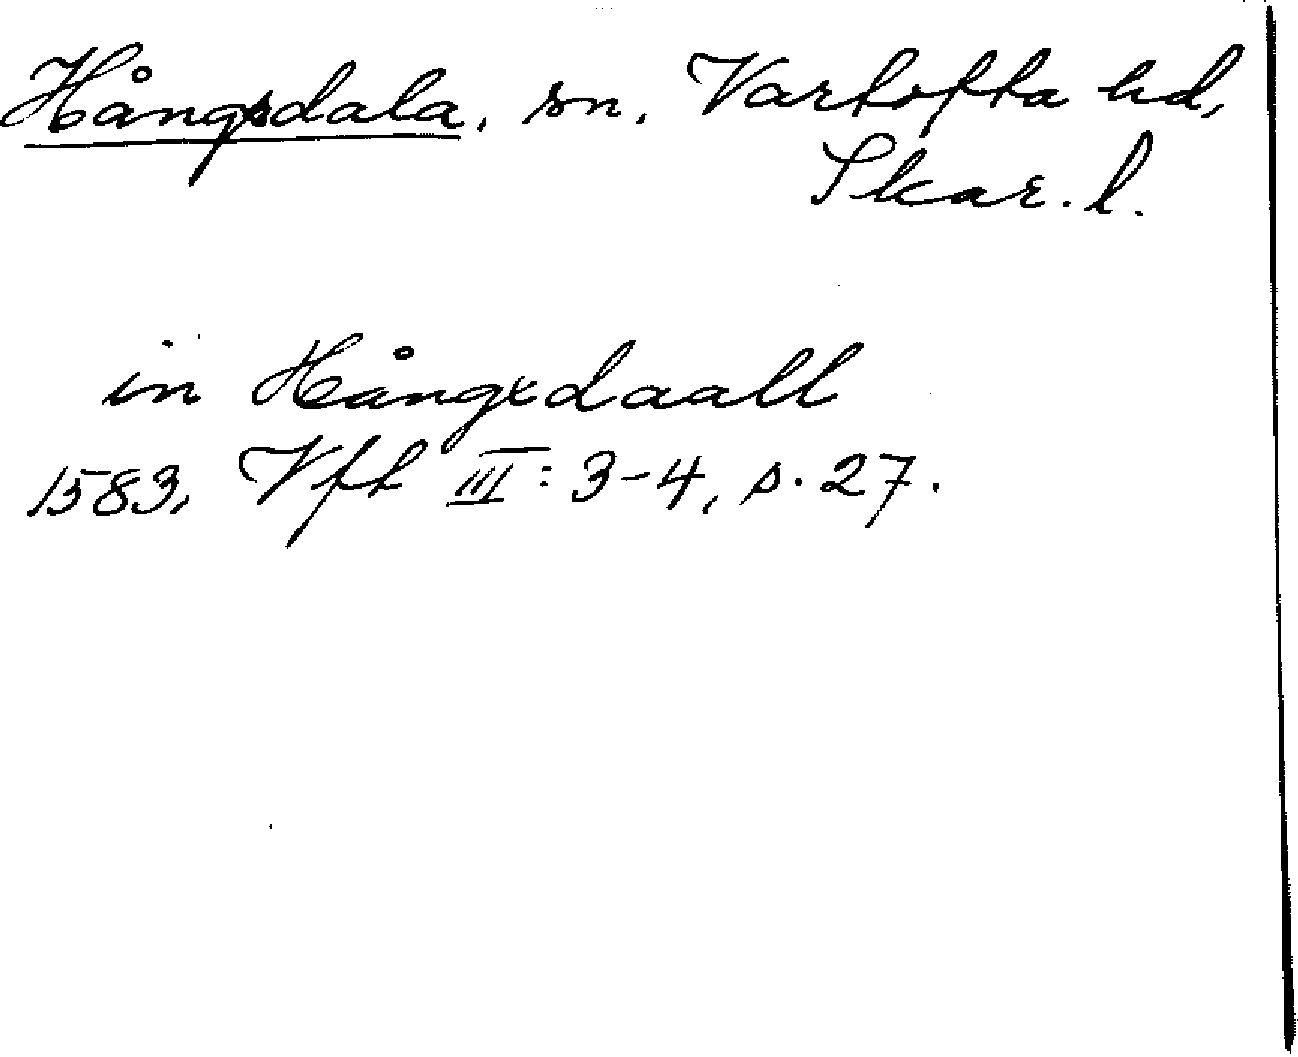 Hångsdala, sn. Vartofta hd,
Skar. l.
in Hångxdaall
1583, Vft III: 3-4, s. 27.